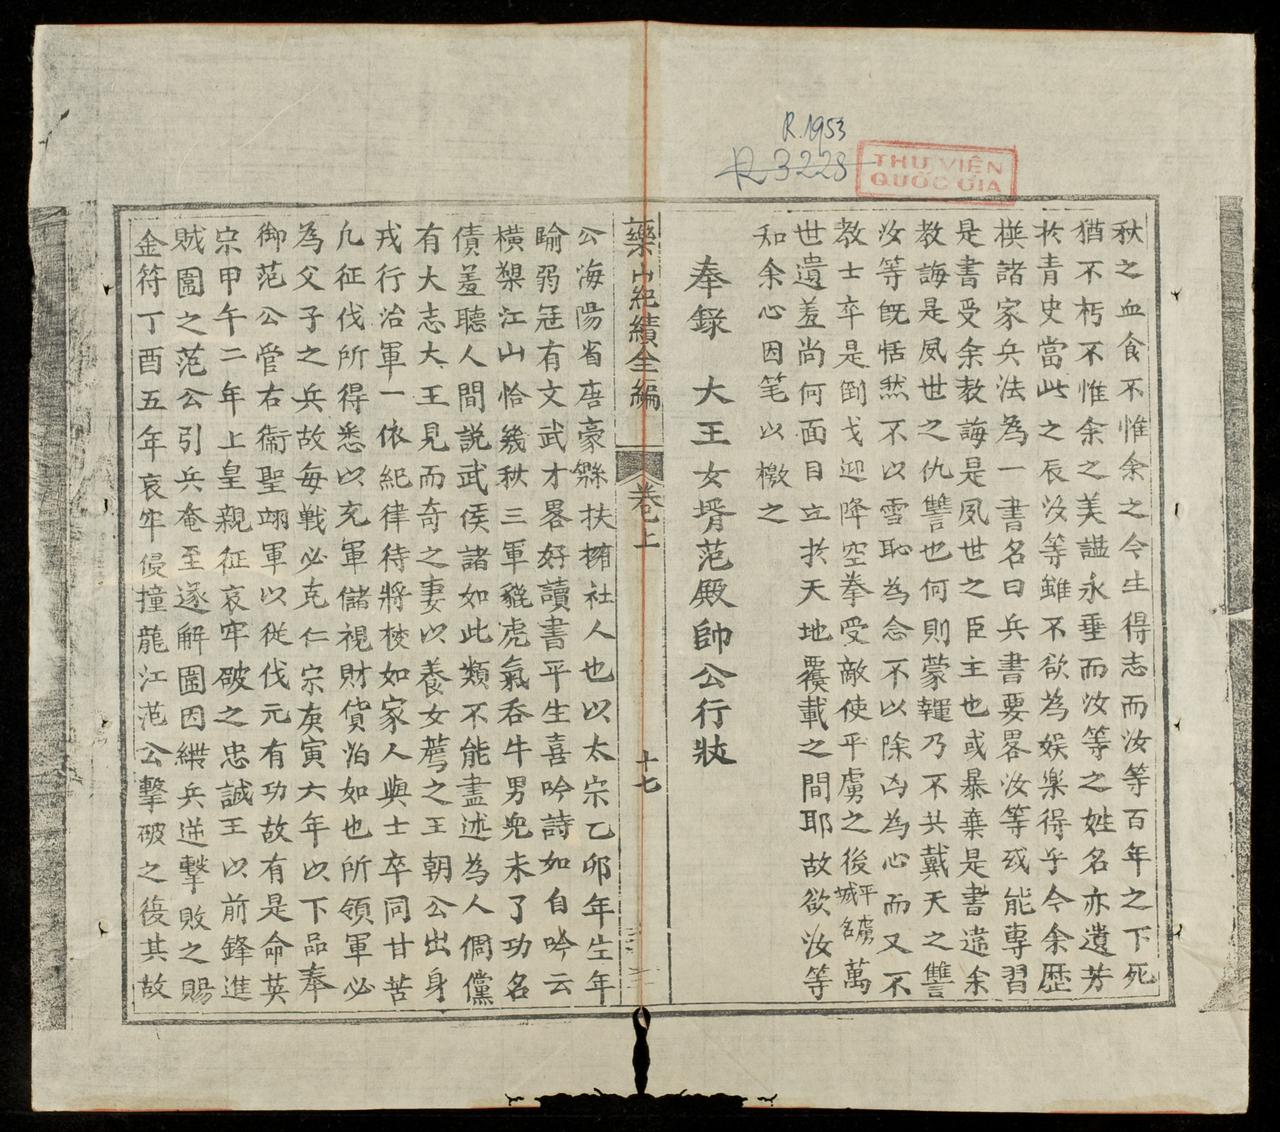 R.1953
R 3228
THƯ VIỆN
QUỐC GIA
秋之血食不惟余之今生得志而汝等百年之下死
猶不朽不惟余之美謚永垂而汝等之姓名亦遺芳
於青史當此之辰汝等雖不欲為娯樂得乎今余歷
撰諸家兵法為一書名曰兵書要畧汝等或能專習
是書受余教誨是夙世之臣主也或暴棄是書違余
教誨是夙世之仇讐也何則蒙韃乃不共戴天之讐
汝等既恬然不以雪恥為念不以除凶為心而又不
教士卒是倒戈迎降空拳受敵使平虜之後平虜城名萬
世遺羞尚何面目立於天地覆載之間耶故欲汝等
知余心因笔以檄之
奉錄 大王女壻范殿帥公行狀
藥山紀績全編 卷之上 十七
公海陽省唐豪縣扶擁社人也以太宗乙卯年生年
踰弱冠有文武才畧好讀書平生喜吟詩如自吟云
橫槊江山恰幾秋三軍貔虎氣吞牛男兒未了功名
債羞聽人間説武侯諸如此類不能盡述為人倜儻
有大志大王見而奇之妻以養女薦之王朝公出身
戎行治軍一依紀律待將校如家人與士卒同甘苦
凢征伐所得悉以充軍儲視財貨泊如也所領軍必
為父子之兵故每戰必克仁宗庚寅六年以下品奉
御范公管右衛聖翊軍以従伐元有功故有是命英
宗甲午二年上皇親征哀牢破之忠誠王以前鋒進
賊圍之范公引兵奄至遂解圍因縱兵逆擊敗之賜
金符丁酉五年哀牢侵撞龍江范公擊破之後其故